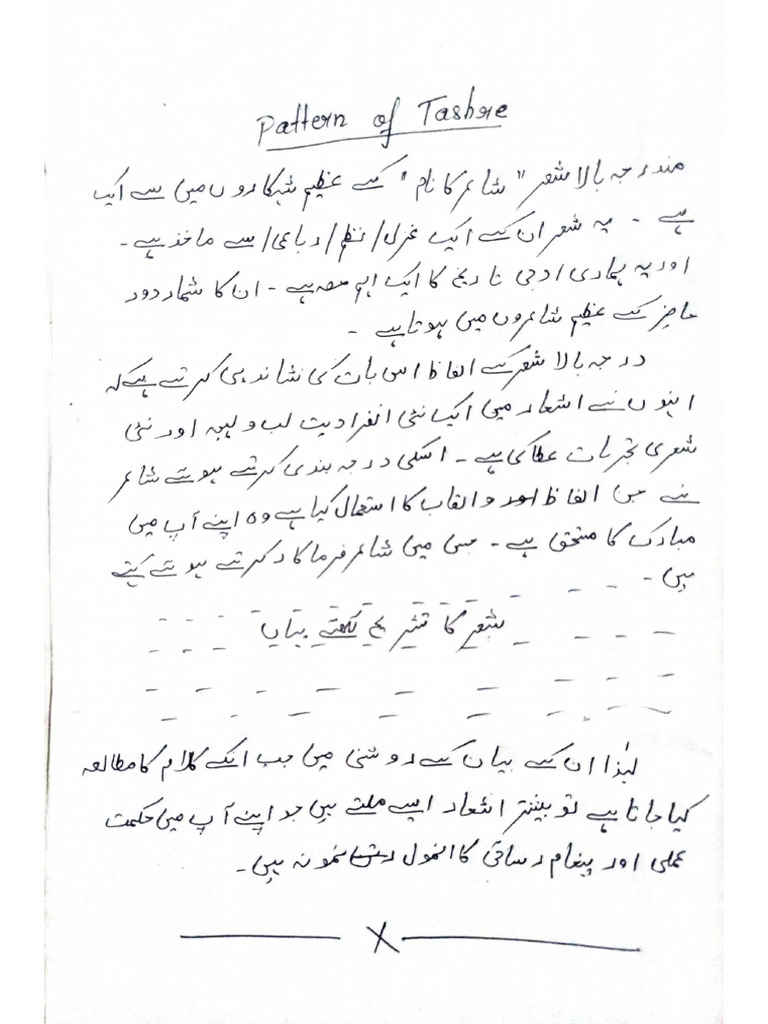 Pattern of Tashre
مندرجہ بالا شعر "شاعر کا نام" کے عظیم شہکاروں میں سے ایک
ہے ۔ یہ شعر ان کے ایک غزل/نظم/رباعی/ سے ماخذ ہے ۔
اور یہ ہماری ادبی تاریخ کا ایک اہم حصہ ہے ۔ ان کا شمار دور
حاضر کے عظیم شاعروں میں ہوتا ہے ۔
درجہ بالا شعر کے الفاظ اس بات کی نشاندہی کرتے ہے کہ
انہوں نے اشعار میں ایک نئی انفرادیت لب و لہجہ اور نئی
شعری تجربات عطا کی ہے ۔ اسکی درجہ بندی کرتے ہوئے شاعر
نے جن الفاظ و القاب کا استعمال کیا ہے وہ اپنے آپ میں
مبارک کا مستحق ہے ۔ جس میں شاعر فرما کرتے ہوئے کہتے
ہیں ۔
شعر کا تشریح لکھئے یہاں
لہٰذا ان کے بیان کے روشنی میں جب انکے کلام کا مطالعہ
کیا جاتا ہے تو بیشتر اشعار ایسے ملتے ہیں جو اپنے آپ میں حکمت
عملی اور پیغام رساقی کا انمول نمونہ ہیں ۔
X